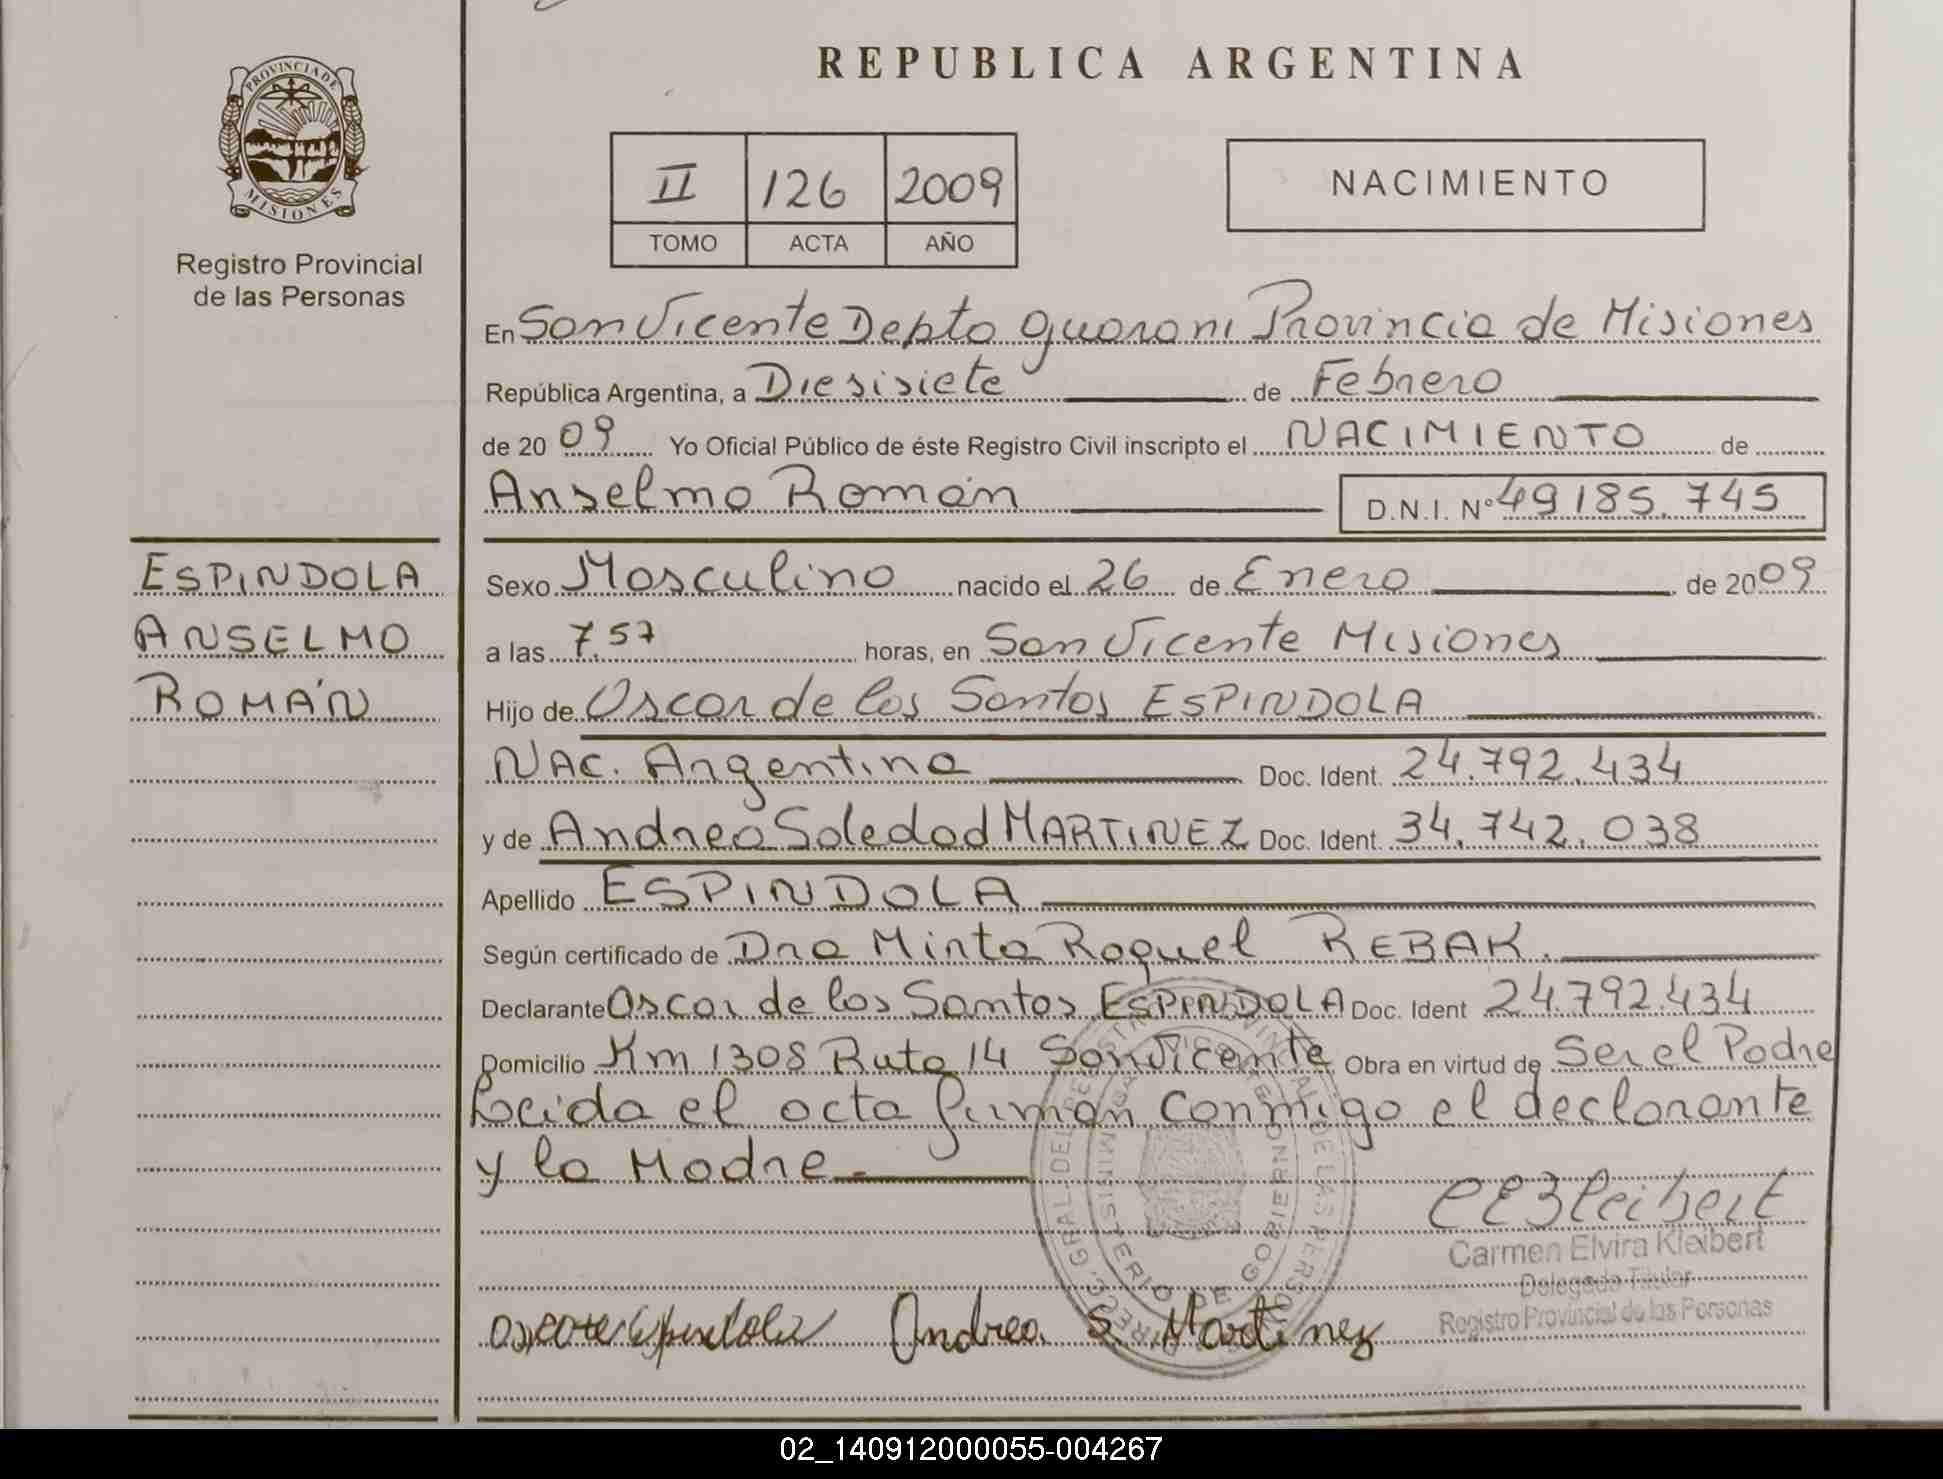 REPUBLICA ARGENTINA
PROVINCIA DE
MISIONES
Registro Provincial
de las Personas
II 126 2009
TOMO ACTA AÑO
NACIMIENTO
En San Vicente Depto guarani Provincia de Misiones
República Argentina, a Diesisiete de Febrero
de 20 09 Yo Oficial Público de éste Registro Civil inscripto el NACIMIENTO de
Anselmo Román D.N.I. N° 49185.745
ESPINDOLA
ANSELMO
ROMÁN
Sexo Masculino nacido el 26 de Enero de 2009
a las 7.57 horas, en San Vicente Misiones
Hijo de Oscar de los Santos ESPINDOLA
NAC. Argentina Doc. Ident. 24.792.434
y de Andrea Soledad MARTINEZ Doc. Ident. 34.742.038
Apellido ESPINDOLA
Según certificado de Dra Mirta Raquel REBAK.
Declarante Oscar de los Santos ESPINDOLA Doc. Ident 24.792.434
Domicilio Km 1308 Ruta 14 San Vicente Obra en virtud de Ser el Padre
Locida el acta firman conmigo el declarante
y la Madre.
MINISTERIO DE GOBIERNO
Carmen Elvira Kleibert
Delegada Titular
Registro Provincial de las Personas
Andrea S. Martinez
02_140912000055-004267